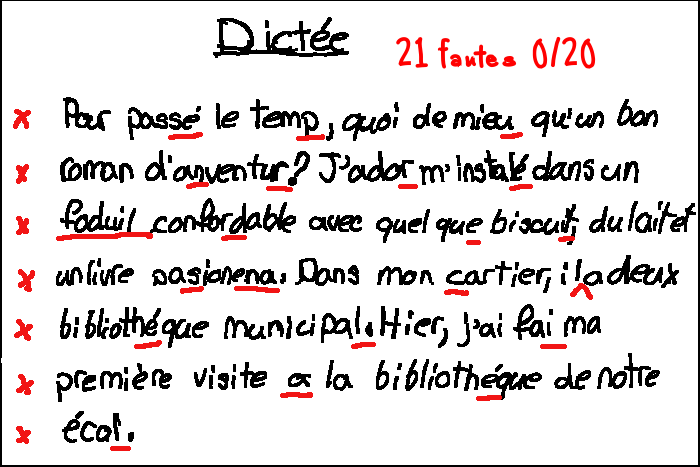 Dictée
21 fautes 0/20
Pour passé le temp, quoi de mieu qu'un bon
roman d'anventur? J'ador m'instalé dans un
foduil confordable avec quel que biscuit, du lait et
un livre pasionena. Dans mon cartier, il a deux
bibliothéque municipal. Hier, j'ai fai ma
première visite a la bibliothéque de notre
écol.